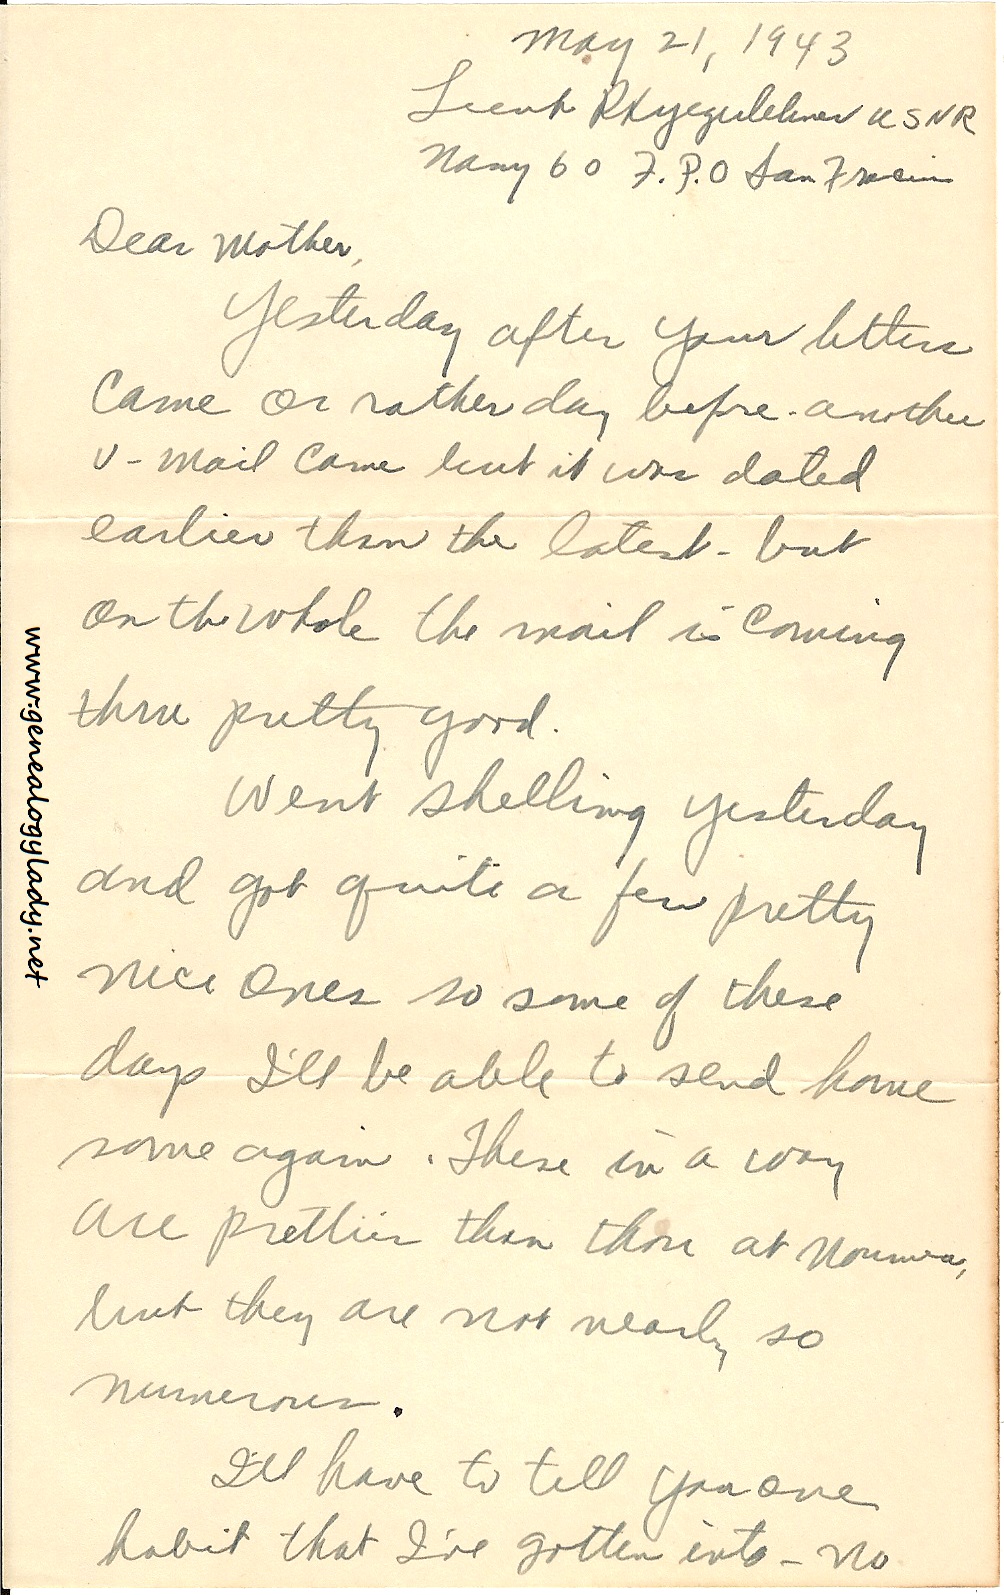 May 21, 1943
Lieut R H Yegulchner USNR
Navy 60 F.P.O San
Dear Mother,
Yesterday after your letters
came or rather day before - another
V-mail came but it was dated
earlier than the latest - but
on the whole the mail is coming
thru pretty good.
Went shelling yesterday
and got quite a few pretty
nice ones so some of these
days I'll be able to send home
some again. These in a way
are prettier than those at Noumea,
but they are not nearly so
numerous.
I'll have to tell you one
habit that I've gotten into - no
www.genealogylady.net